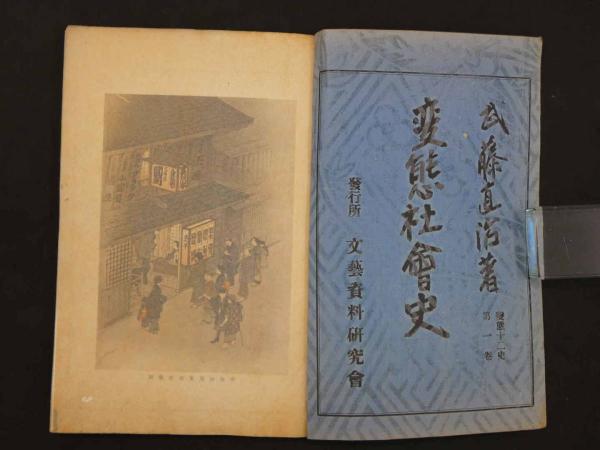 武藤直治著
變態十二史
第一卷
変態社會史
發行所 文藝資料研究會